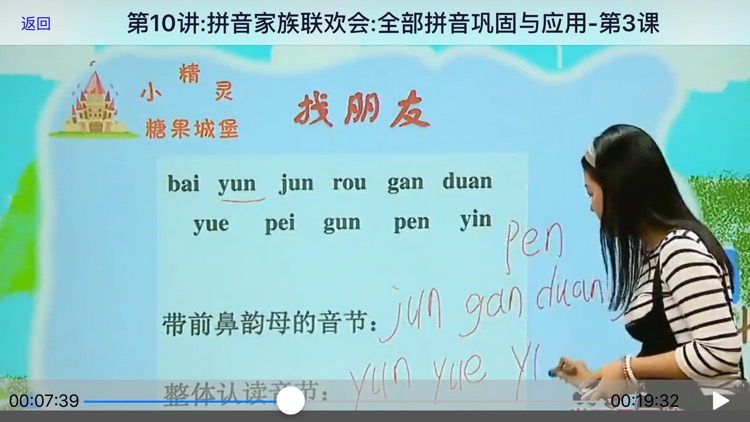 返回
第10讲:拼音家族联欢会:全部拼音巩固与应用-第3课
小 精 灵
糖果城堡
找朋友
bai yun jun rou gan duan
yue pei gun pen yin
pen
带前鼻韵母的音节: jun gan duan
整体认读音节: yun yue yi
00:07:39
00:19:32